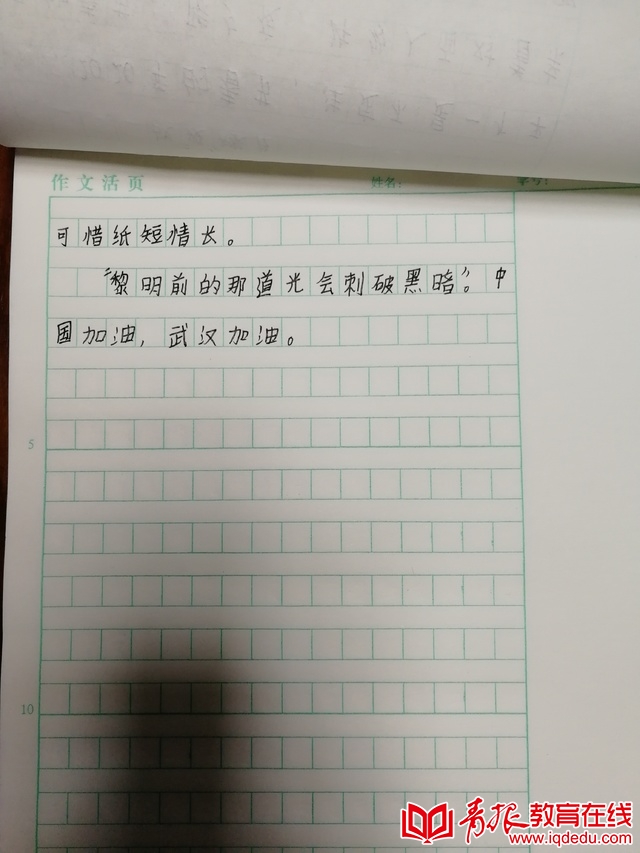 作文活页 姓名: 学号:
可惜纸短情长。
“黎明前的那道光会刺破黑暗”。中
国加油，武汉加油。
5
10
青报教育在线
www.iqdedu.com